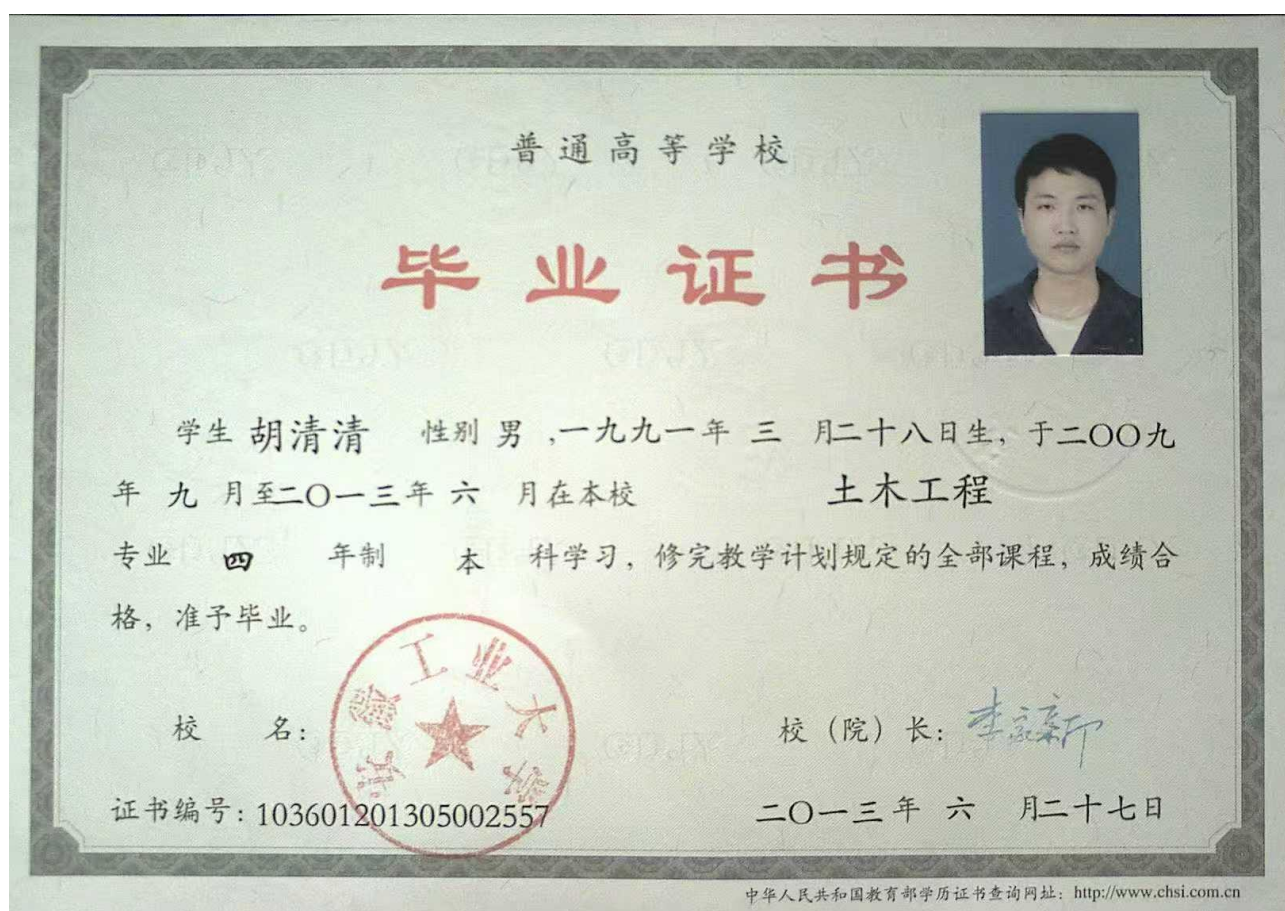 普通高等学校
毕业证书
学生 胡清清 性别 男 ,一九九一年 三 月二十八日生，于二〇〇九
年 九 月至二〇一三年 六 月在本校 土木工程
专业 四 年制 本 科学习，修完教学计划规定的全部课程，成绩合
格，准予毕业。
安徽工业大学
校 名： 校（院）长：李家新
证书编号：103601201305002557 二〇一三年 六 月二十七日
中华人民共和国教育部学历证书查询网址：http://www.chsi.com.cn